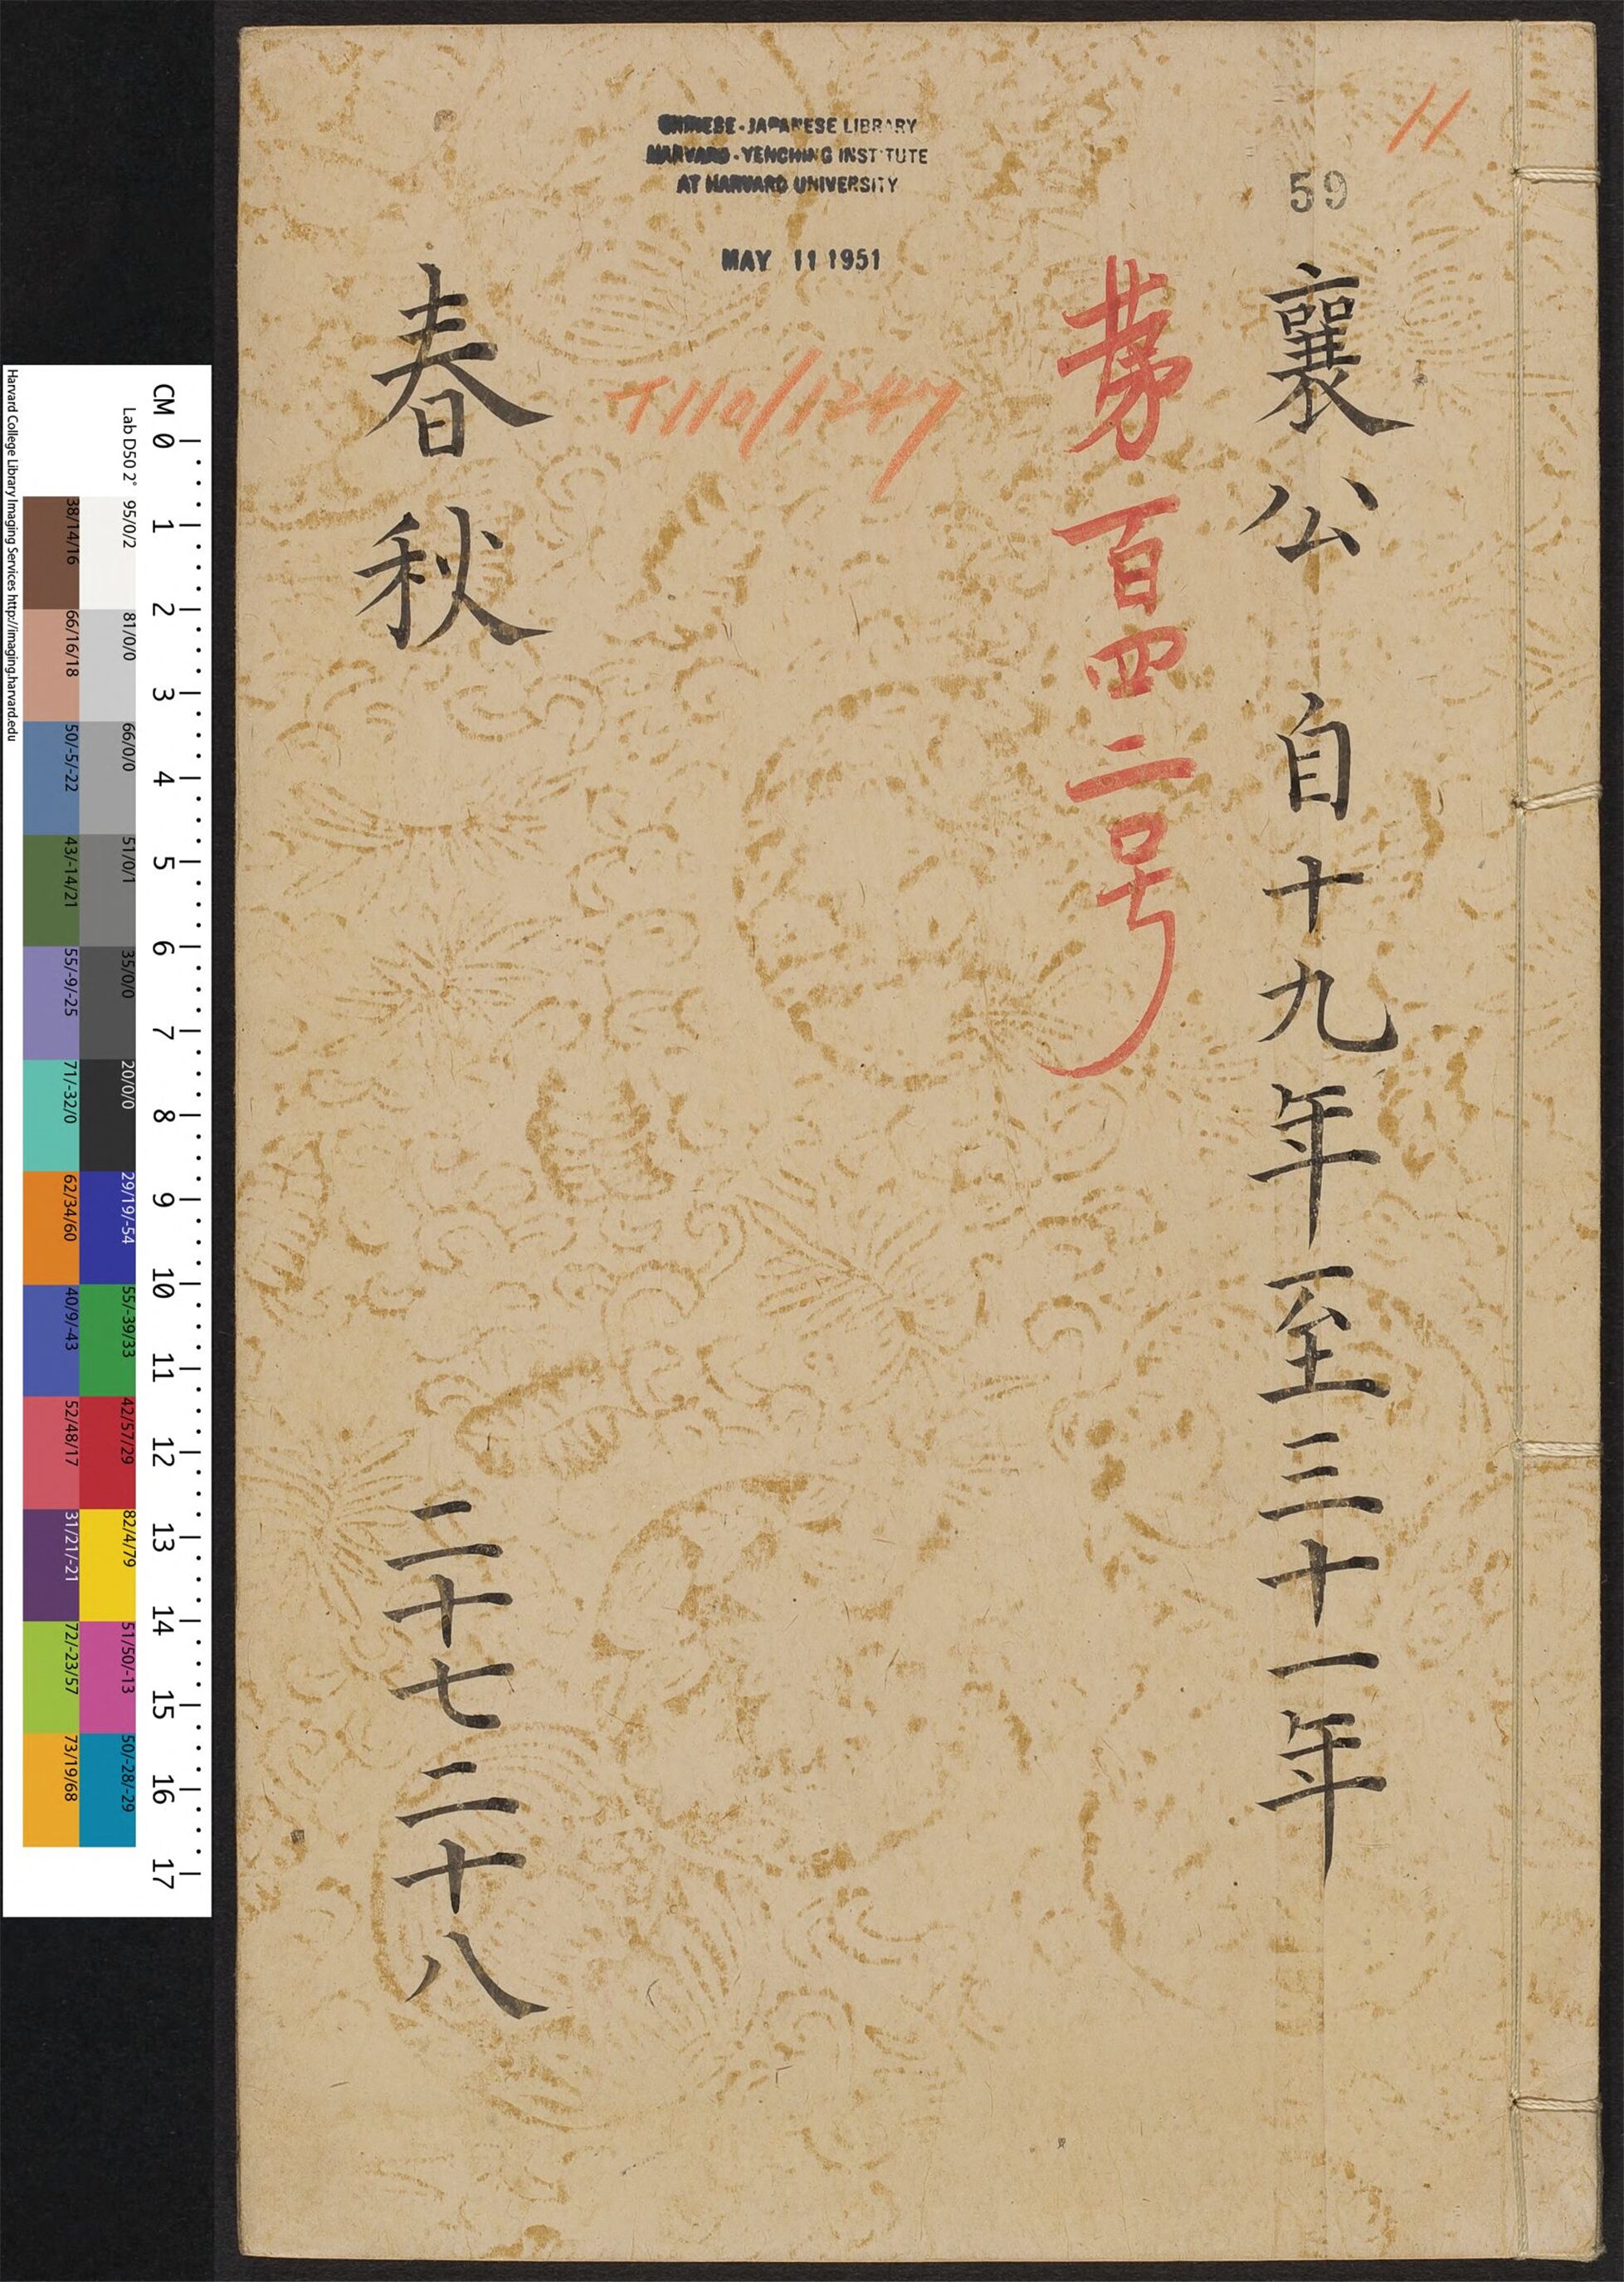 11
59
襄公 自十九年至三十一年
第百四二号
CHINESE-JAPANESE LIBRARY
HARVARD-YENCHING INSTITUTE
AT HARVARD UNIVERSITY
MAY 11 1951
T110/1247
春秋 二十七 二十八
CM 0 1 2 3 4 5 6 7 8 9 10 11 12 13 14 15 16 17
Lab D50 2° 95/0/2 81/0/0 66/0/0 51/0/1 35/0/0 20/0/0 29/19/-54 55/-39/33 42/57/29 82/4/79 51/50/-13 50/-28/-29
38/14/16 66/16/18 50/-5/-22 43/-14/21 55/-9/-25 71/-32/0 62/34/60 40/9/-43 52/48/17 31/21/-21 72/-23/57 73/19/68
Harvard College Library Imaging Services http://imaging.harvard.edu